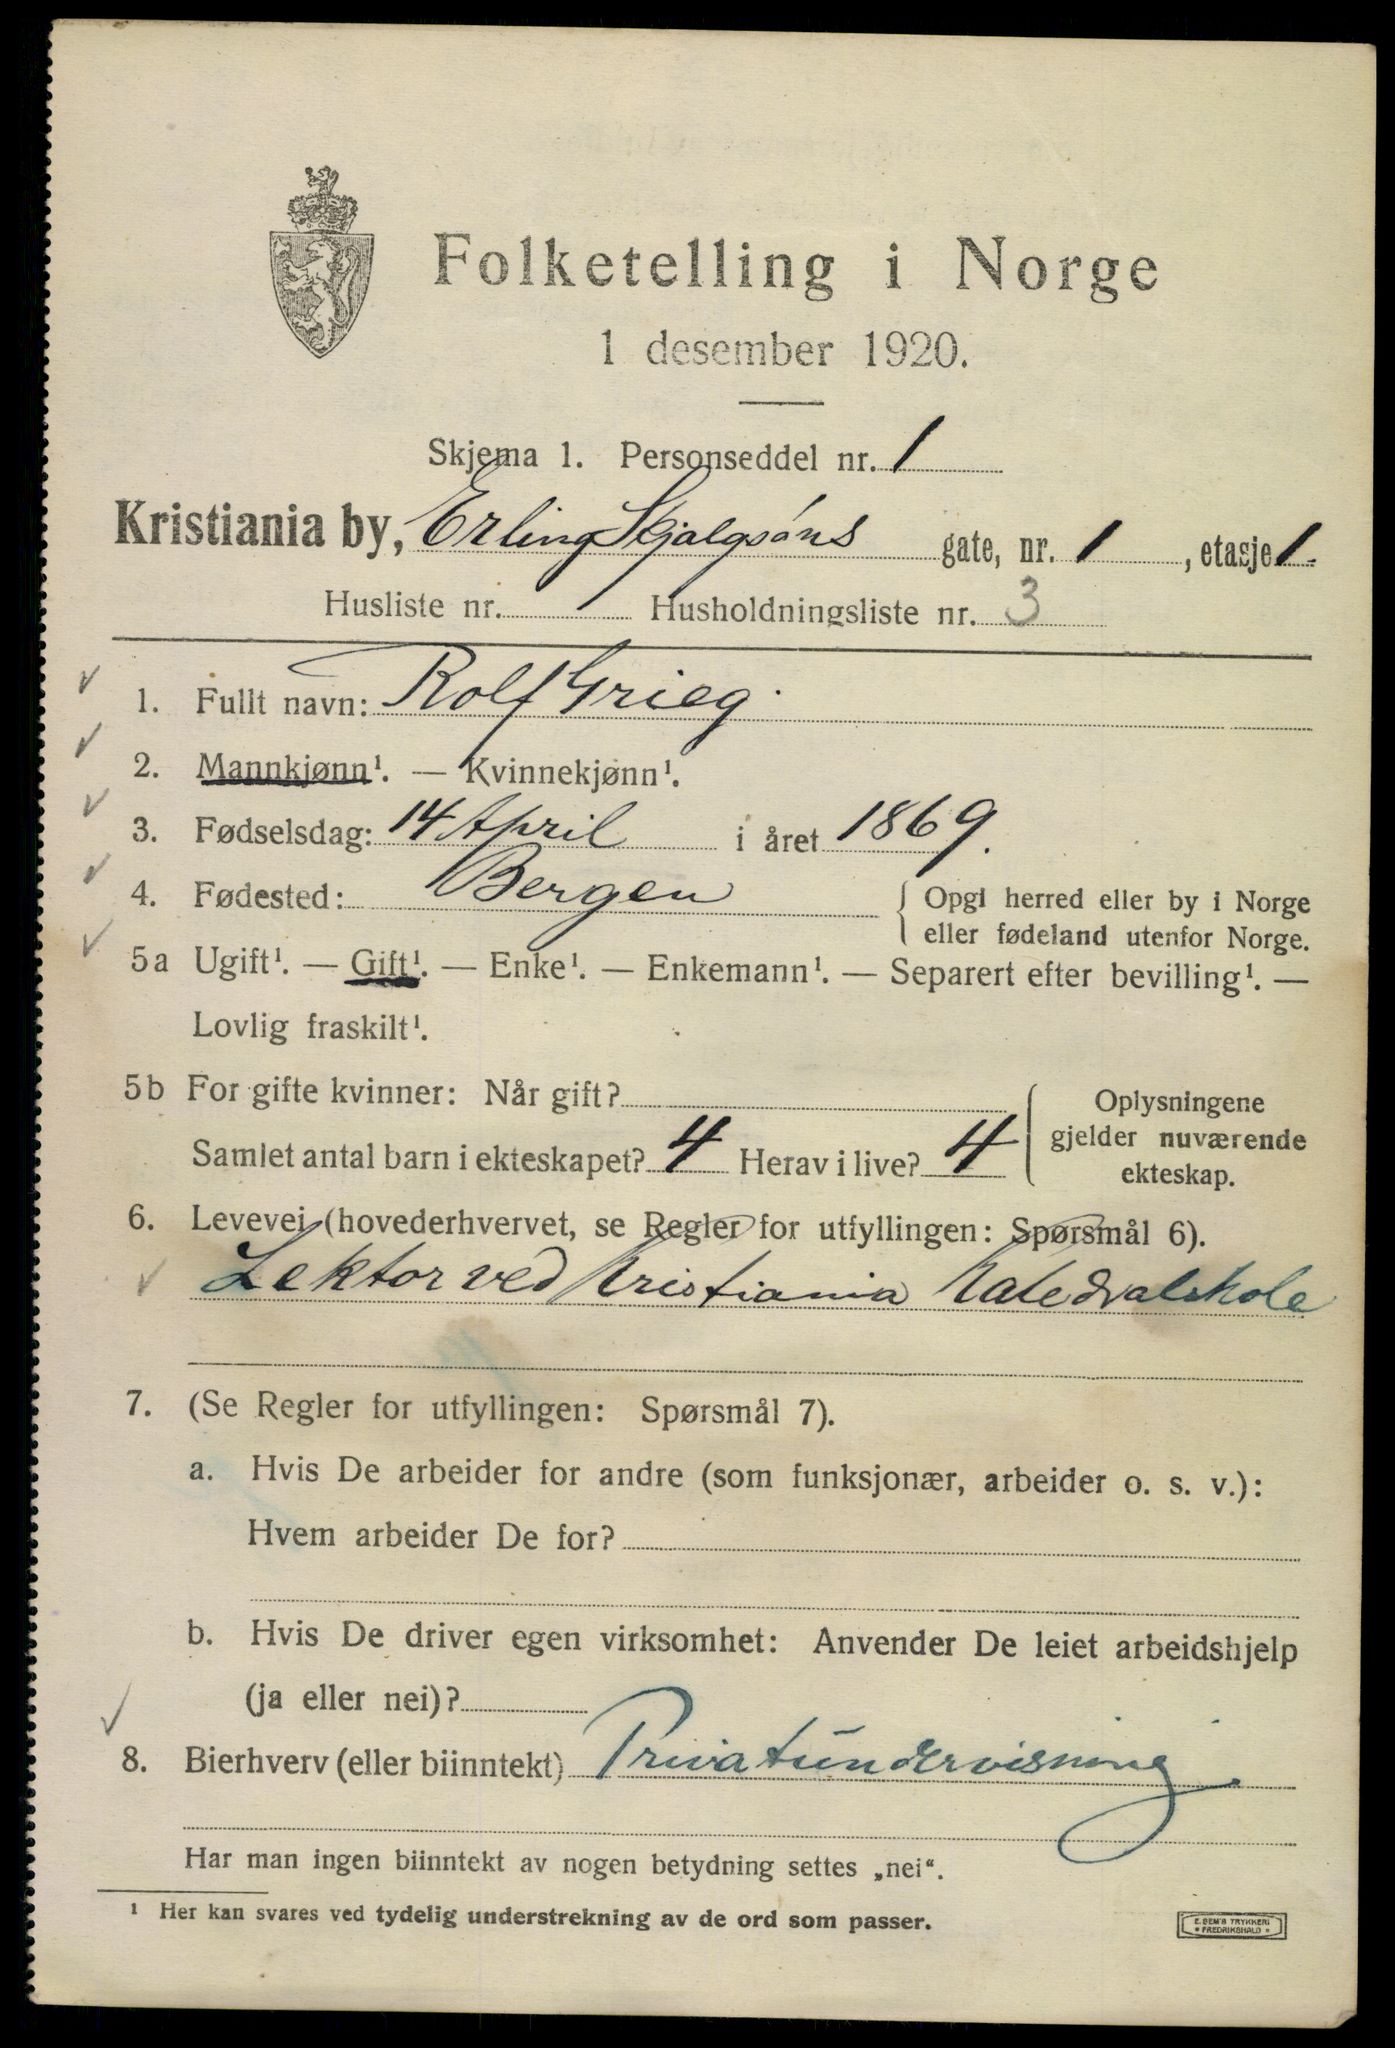 Folketelling i Norge
1 desember 1920.
Skjema 1. Personseddel nr. 1
Kristiania by, Erling Skjalgsöns gate, nr. 1, etasje 1.
Husliste nr. Husholdningsliste nr. 3
1. Fullt navn: Rolf Grieg.
2. Mannkjønn¹. — Kvinnekjønn¹.
3. Fødselsdag: 14 April i året 1869.
4. Fødested: Bergen { Opgi herred eller by i Norge
eller fødeland utenfor Norge.
5a Ugift¹. — Gift¹. — Enke¹. — Enkemann¹. — Separert efter bevilling¹. —
Lovlig fraskilt¹.
5b For gifte kvinner: Når gift?
Samlet antal barn i ekteskapet? 4 Herav i live? 4
{ Oplysningene
gjelder nuværende
ekteskap.
6. Levevei (hovederhvervet, se Regler for utfyllingen: Spørsmål 6).
Lektor ved Kristiania Katedralskole
7. (Se Regler for utfyllingen: Spørsmål 7).
a. Hvis De arbeider for andre (som funksjonær, arbeider o. s. v.):
Hvem arbeider De for?
b. Hvis De driver egen virksomhet: Anvender De leiet arbeidshjelp
(ja eller nei)?
8. Bierhverv (eller biinntekt) Privatundervisning
Har man ingen biinntekt av nogen betydning settes „nei“.
¹ Her kan svares ved tydelig understrekning av de ord som passer.
E. SEM'S TRYKKERI
• FREDRIKSHALD •